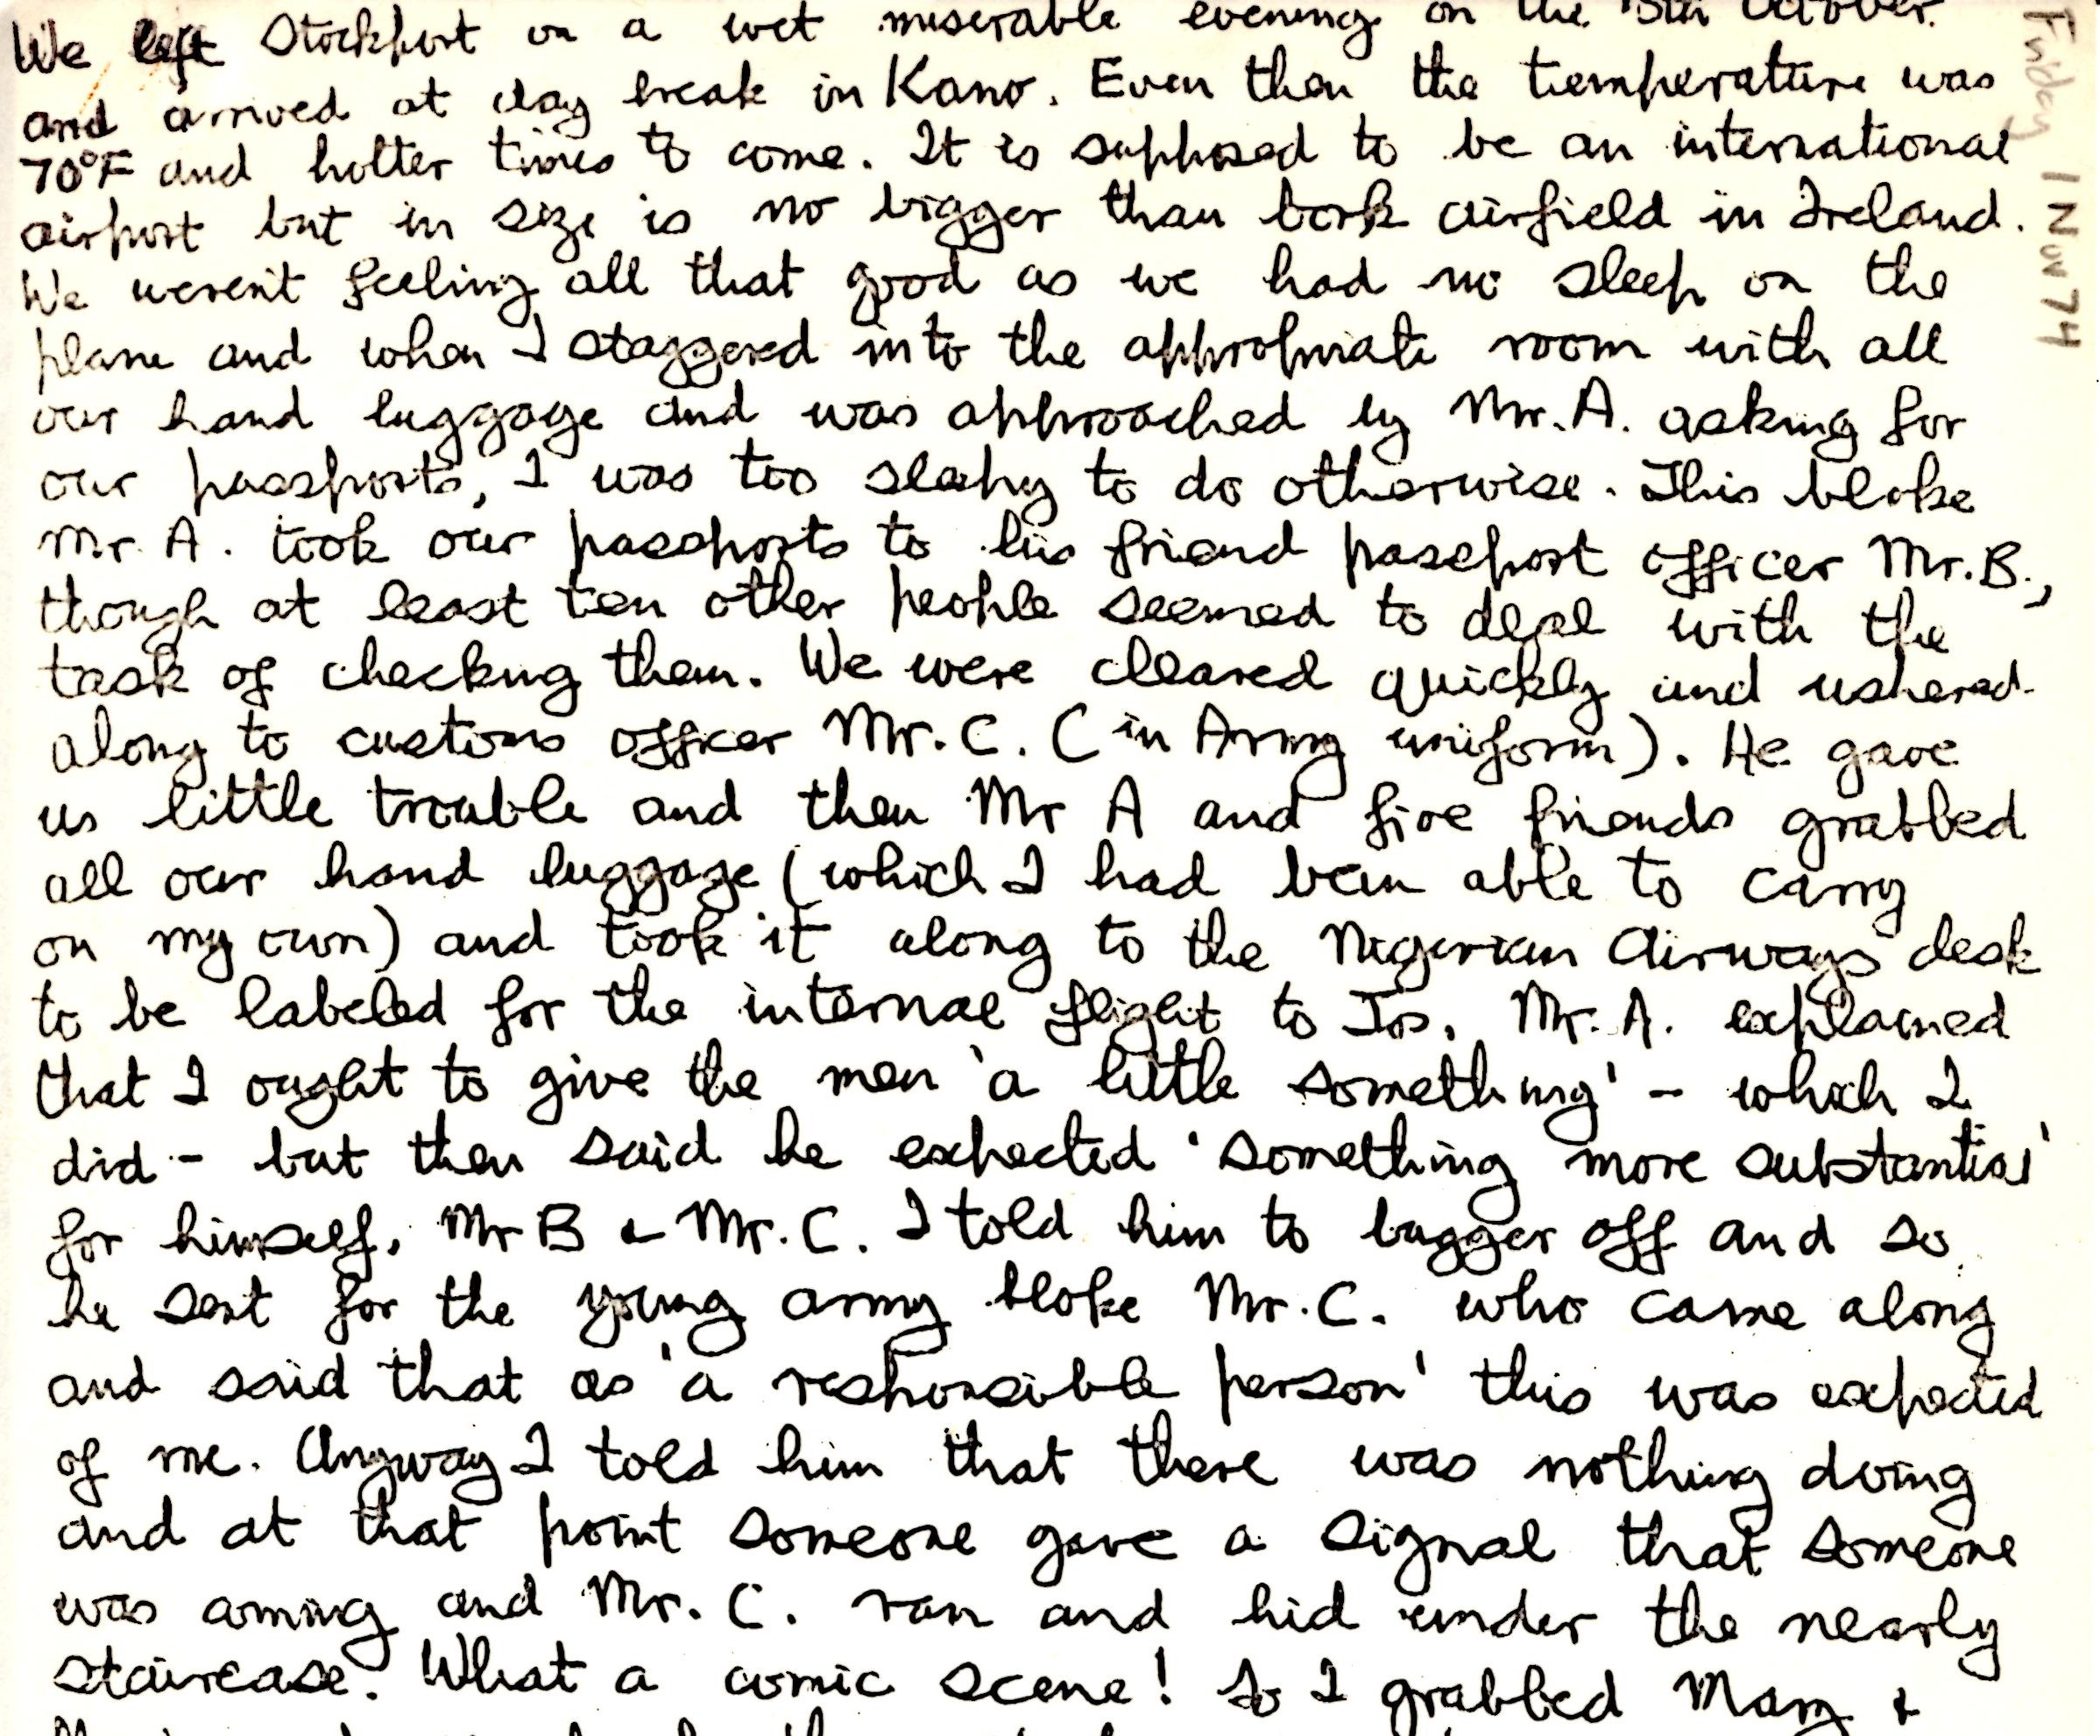 We left Stockport on a wet miserable evening on the October.
and arrived at day break in Kano. Even then the temperature was
70°F and hotter times to come. It is supposed to be an international
airport but in size is no bigger than Cork airfield in Ireland.
We weren't feeling all that good as we had no sleep on the
plane and when I staggered into the appropriate room with all
our hand luggage and was approached by Mr. A. asking for
our passports, I was too sleepy to do otherwise. This bloke
Mr. A. took our passports to his friend passport officer Mr. B.,
though at least ten other people seemed to deal with the
task of checking them. We were cleared quickly and ushered
along to customs officer Mr. C. (in Army uniform). He gave
us little trouble and then Mr A and five friends grabbed
all our hand luggage (which I had been able to carry
on my own) and took it along to the Nigerian Airways desk
to be labeled for the internal flight to Jos. Mr. A. explained
that I ought to give the men 'a little something' - which I
did - but then said he expected 'something more substantial'
for himself, Mr B & Mr. C. I told him to bugger off and so
he sent for the young army bloke Mr. C. who came along
and said that as 'a responsible person' this was expected
of me. Anyway I told him that there was nothing doing
and at that point someone gave a signal that someone
was coming and Mr. C. ran and hid under the nearly
staircase. What a comic scene! So I grabbed Mary &
Friday 1 Nov 74